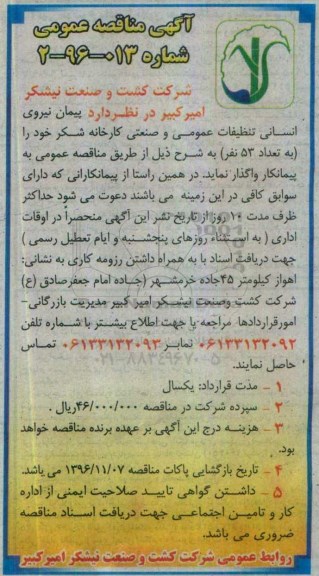 آگهی مناقصه عمومی
شماره ۰۱۳-۹۶-۲
شرکت کشت و صنعت نیشکر
امیرکبیر در نظردارد پیمان نیروی
انسانی تنظیفات عمومی و صنعتی کارخانه شکر خود را
(به تعداد ۵۳ نفر) به شرح ذیل از طریق مناقصه عمومی به
پیمانکار واگذار نماید. در همین راستا از پیمانکارانی که دارای
سوابق کافی در این زمینه می باشند دعوت می شود حداکثر
ظرف مدت ۱۰ روز از تاریخ نشر این آگهی منحصراً در اوقات
اداری ( به استثناء روزهای پنجشنبه و ایام تعطیل رسمی )
جهت دریافت اسناد با به همراه داشتن رزومه کاری به نشانی:
اهواز کیلومتر ۴۵جاده خرمشهر (جاده امام جعفرصادق (ع)
شرکت کشت وصنعت نیشکر امیر کبیر مدیریت بازرگانی-
امورقراردادها مراجعه یا جهت اطلاع بیشتر با شماره تلفن
۰۶۱۳۳۱۳۲۰۹۲ نمابر ۰۶۱۳۳۱۳۲۰۹۳ تماس
حاصل نمایند.
۱ - مدت قرارداد: یکسال
۲ - سپرده شرکت در مناقصه ۴۶/۰۰۰/۰۰۰ریال .
۳ - هزینه درج این آگهی بر عهده برنده مناقصه خواهد
بود.
۴ - تاریخ بازگشایی پاکات مناقصه ۱۳۹۶/۱۱/۰۷ می باشد.
۵ - داشتن گواهی تایید صلاحیت ایمنی از اداره
کار و تامین اجتماعی جهت دریافت اسناد مناقصه
ضروری می باشد.
روابط عمومی شرکت کشت و صنعت نیشکر امیرکبیر